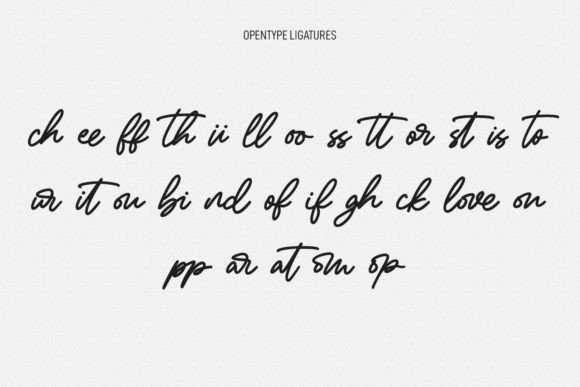 OPENTYPE LIGATURES
ch ee ff th ii ll oo ss tt or st is to
ur it ou bi nd of if gh ck love on
pp ar at om op